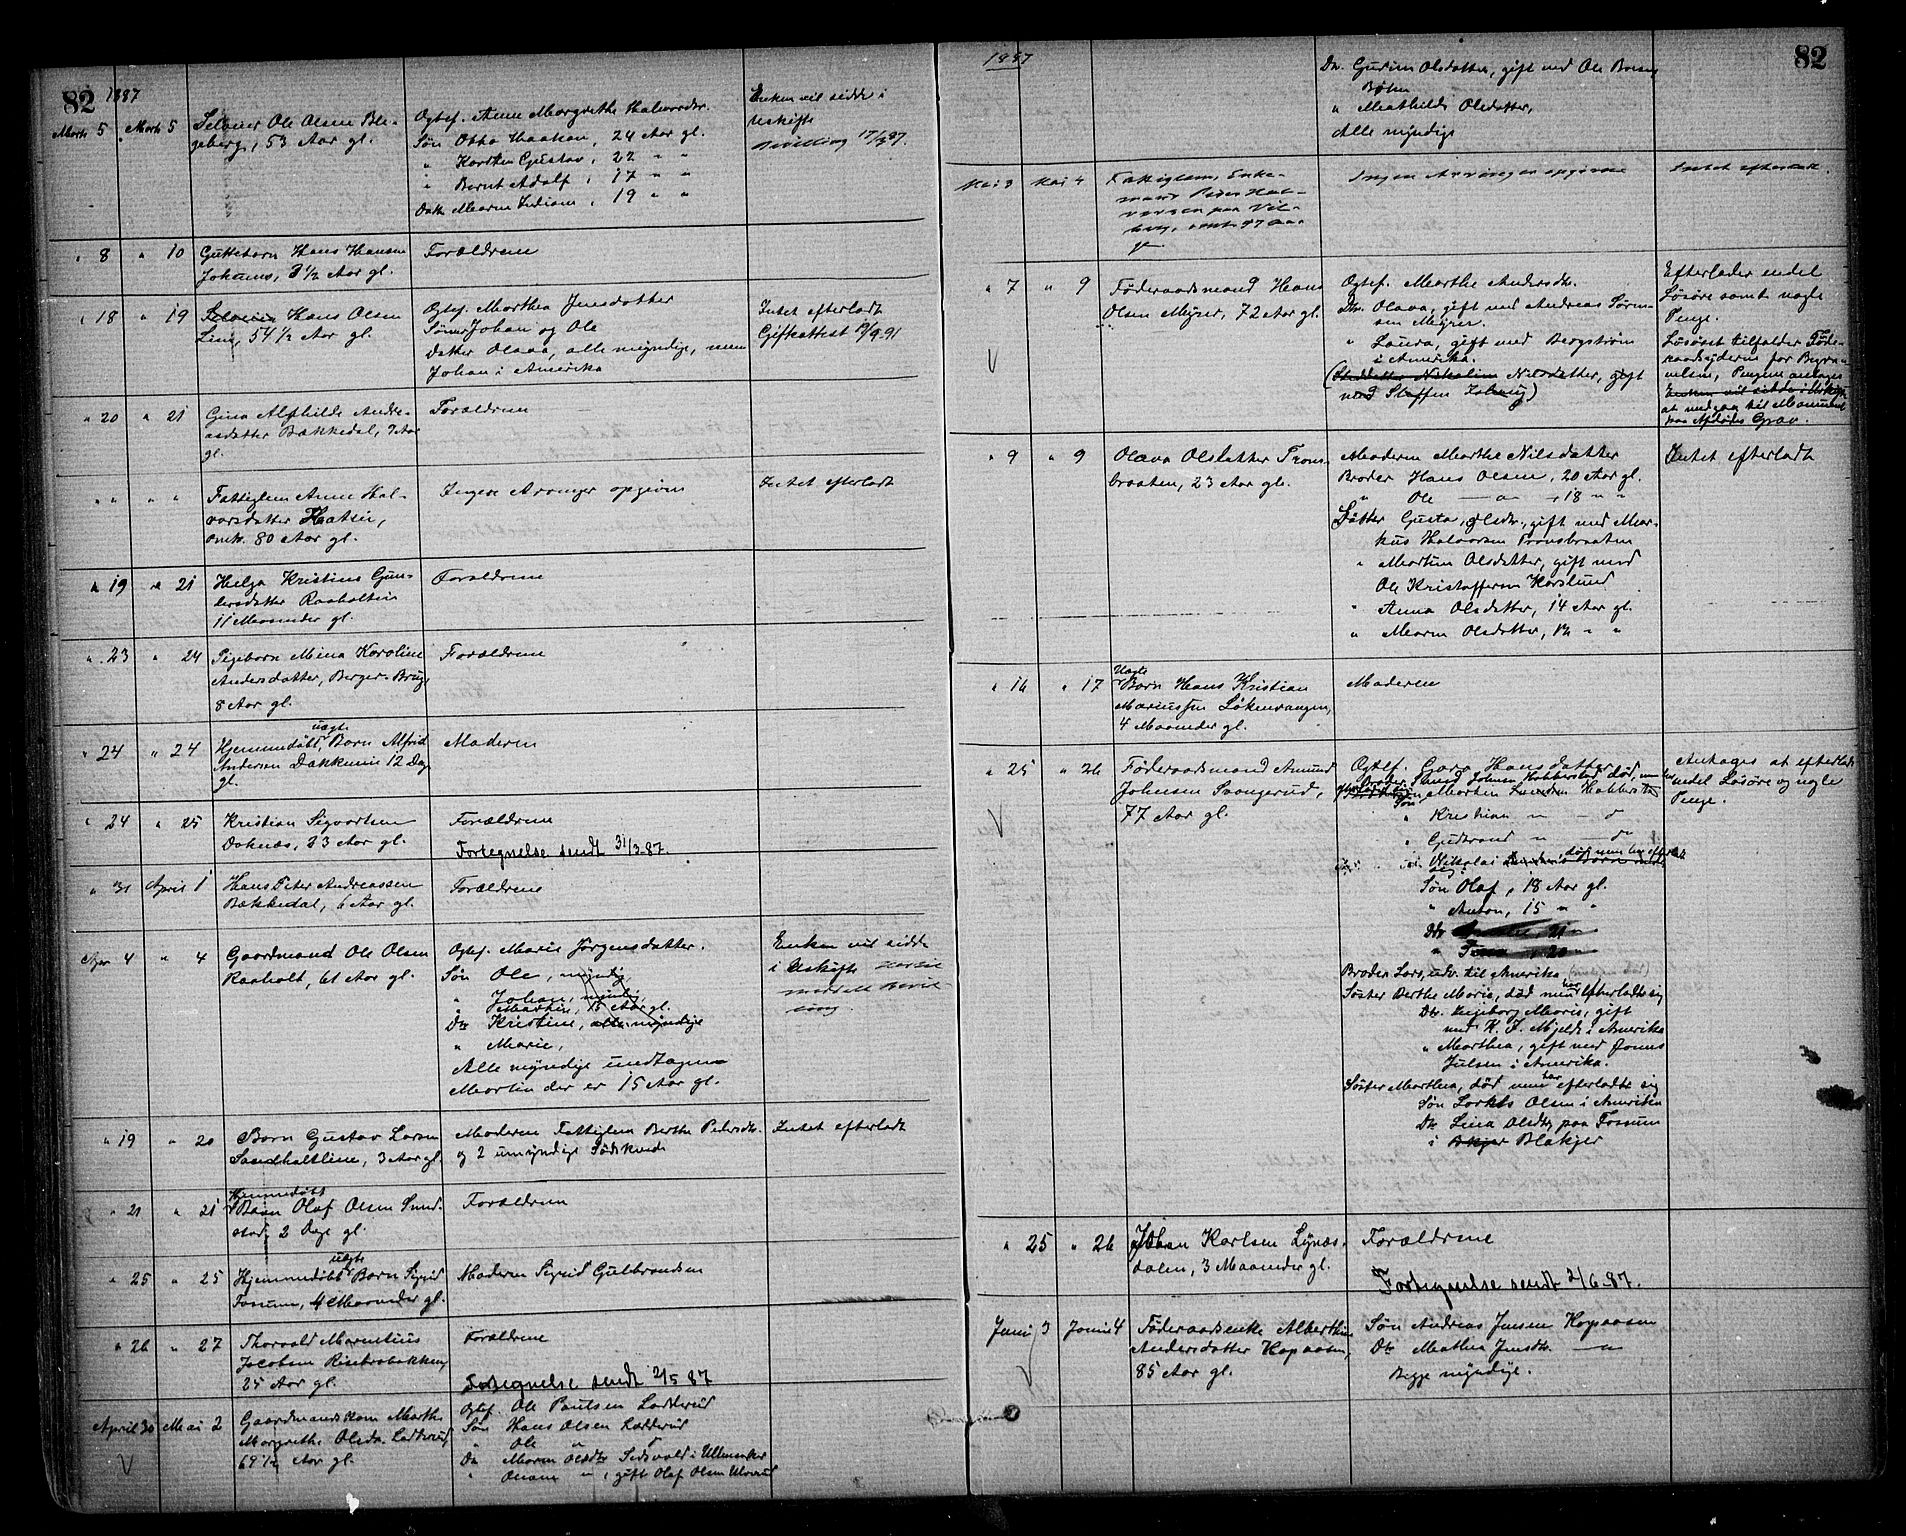 82 1887
Marts 5 Marts 5 Selveier Ole Olsen Ble-
geberg, 53 Aar gl.
Ogtef. Anne Margrethe Halvorsdr.
Søn Otto Haakon, 24 Aar gl.
" Karsten Gustav, 22 " "
" Bernt Adolf, 17 " "
Datt. Maren Indiane, 19 " "
Enken vil sidde i
Uskifte
Bevilling 17/3 87.
" 8 " 10 Guttebarn Hans Hansen
3 1/2 Aar gl.
Forældrene
" 18 " 19 Selveier Hans Olsen
Lein, 54 1/2 Aar gl.
Ogtef. Marthea Jensdatter
Sønner Johan og Ole
Datter Olava, alle myndige, men
Johan i Amerika
Intet efterladt
Gifteattest 19/9 91
" 20 " 21 Gina Alfhilde Andre-
asdatter Bækkedal, 7 Aar
gl.
Forældrene
" " " " Fattiglem Anne Hal-
vorsdatter
omtr. 80 Aar gl.
Ingen Arvinger opgiven
Intet efterladt
" 19 " 21 Helga Kristine Gun-
dersdatter Raaholtein
11 Maaneder gl.
Forældrene
" 23 " 24 Pigebarn Mina Karoline
Andersdatter, Berger-Brug,
8 Aar gl.
Forældrene
" 24 " 24 Hjemmedøbt uægte Barn Alfrid
Andersen 12 Dage
gl.
Moderen
" 24 " 25 Kristian Sigvartsen
Doknæs, 23 Aar gl.
Forældrene
Fortegnelse sendt 31/3 87.
" 31 April 1 Hans Peter Andreassen
Bækkedal, 6 Aar gl.
Forældrene
Apr 4 " 4 Gaardmand Ole Olsen
Raaholt, 61 Aar gl.
Ogtef. Marie Jørgensdatter.
Søn Ole, myndig
" Johan, myndig
" Martin, 15 Aar gl.
Dtr Kristine, alle myndige
" Marie,
Alle myndige undtagen
Martin der er 15 Aar gl.
Enken vil sidde
i Uskifte
" 19 " 20 Barn Gustav Larsen
3 Aar gl.
Moderen Fattiglem Berthe Pedersdtr.
og 2 umyndige Sødskende
Intet efterladt
" 21 " 21 Hjemmedøbt
Barn Olaf Olsen Sund-
stad, 2 Dage gl.
Forældrene
" 25 " 25 Hjemmedøbt uægte Barn Sigrid
Fossum, 4 Maaneder gl.
Moderen Sigrid Gulbrandsen
" 26 " 27 Thorvald Marnetius
Jacobsen Risebrobakken,
25 Aar gl.
Forældrene
Fortegnelse sendt 2/5 87
April 30 Mai 2 Gaardmandskone Marthe
Margrethe Olsdr. Ladderud
69 1/2 Aar gl.
Ogtef. Ole Paulsen Ladderud
Søn Hans Olsen Ladderud
" Ole " "
Dtr Maren Olsdtr i Ullensaker
" gift Olaf Olsen
1887 82
Dtr. Gurine Olsdatter, gift med Ole
" Mathilde Olsdatter,
Alle myndige
Mai 3 Mai 4 Fattiglem, Enke-
mand Peder Hal-
vorsen paa
Ingen Arvinger opgivne
Intet efterladt.
" 7 " 9 Føderaadsmand Hans
Olsen Myrer, 72 Aar gl.
Ogtef. Marthe Andersdtr.
Dtr. Olava, gift med Andreas Søren-
sen Myrer.
" Laura, gift med Bergstrøm
i Amerika.
(Steddatter Nikoline Nilsdatter, gift
med Steffen)
Efterlader endel
Løsøre samt nogle
Penge.
Løsøret tilfalder Føde-
raadsyderne for Begra-
velsen, Pengene antages
Enken vil sidde i Uskifte
at medgaa til Monument
paa Afdødes Grav.
" 9 " 9 Olava Olsdatter Trons-
braaten, 23 Aar gl.
Moderen Marthe Nilsdatter
Broder Hans Olsen, 20 Aar gl.
" Ole — " —, 18 " "
Søster Gusta Olsdtr., gift med Mar-
kus Halvorsen Tronsbraaten
" Martine Olsdatter, gift med
Ole Kristoffersen Korslund
" Anna Olsdatter, 14 Aar gl.
" Maren Olsdatter, 12 " "
Intet efterladt
" 16 " 17 Uægte
Barn Hans Kristian
Mariussen Løkenvangen,
4 Maaneder gl.
Moderen
" 25 " 26 Føderaadsmand Amund
Johnsen Svangerud,
77 Aar gl.
Ogtef. Hansdatter
Søn Morten
" Kristian " — "
" Gudbrand " — "
" Nikolai
Søn Olaf, 18 Aar gl.
" Anton, 15 " "
Broder Lars, udv. til Amerika
Søster Berthe Marie, død men har efterladt sig
Dtr. Ingeborg Marie, gift
med K. J. Mjelde i Amerika
" Marthea, gift med
Julsen i Amerika.
Søster Marthea, død men har efterladt sig
Søn Olsen i Amerika
Dtr. Lina Olsdtr paa Fossum
i Blakjer
Antages at efterlade
endel Løsøre og nogle
Penge.
" 25 " 26 Johan Karlsen Lynæs-
dalen, 3 Maaneder gl.
Forældrene
Fortegnelse sendt 2/6 87.
Juni 3 Juni 4 Føderaadsenke Alberthine
Andersdatter Kopaasen,
85 Aar gl.
Søn Andreas Jensen Kopaasen
Dtr Mathea Jensdtr. — " —
Begge myndige.